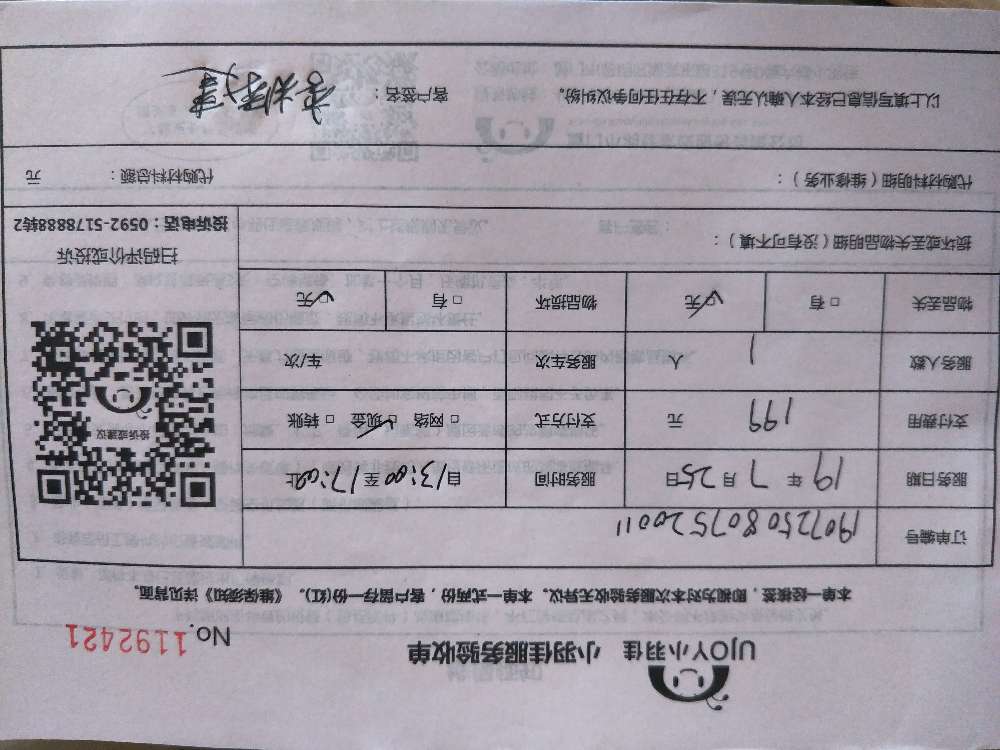 UJOY小羽佳 小羽佳服务验收单 No.1192421
本单一经核签，即视为对本次服务验收无异议。本单一式两份，客户留存一份(红)。《维保须知》详见背面。
订单编号 1907250807520011
服务日期 19年7月25日 服务时间 自13:00至17:00止
支付费用 199 元 支付方式 □ 网络 ☑ 现金 □ 转账
服务人数 1 人 服务车次 车/次
物品丢失 □ 有 ☑ 无 物品损坏 □ 有 ☑ 无
投诉或建议
扫码评价或投诉
投诉电话：0592-5178888转2
损坏或丢失物品明细（没有可不填）：
代购材料明细（维修业务）： 代购材料总额： 元
以上填写信息已经本人确认无误，不存在任何争议纠纷。 客户签名：